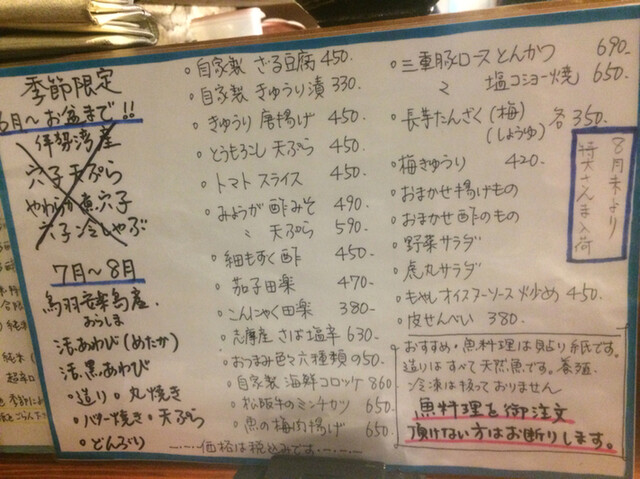 季節限定
6月～お盆まで!!
伊勢湾産
穴子天ぷら
やわらか煮穴子
穴子冷しゃぶ
7月～8月
鳥羽答志島産
活あわび(めたか)
活黒あわび
・造り・丸焼き
・バター焼き・天ぷら
・どんぶり
・自家製 ざる豆腐 450.
・自家製 きゅうり漬 330.
・きゅうり 唐揚げ 450
・とうもろこし 天ぷら 450.
・トマト スライス 450
・みょうが 酢みそ 490
〃 天ぷら 590.
・細もずく酢 450
・茄子田楽 470
・こんにゃく田楽 380-
・志摩産 さば塩辛 630.
・おつまみ色々六種類の50.
・自家製 海鮮コロッケ 860
・松阪牛のミンチカツ 650.
・魚の梅肉揚げ 650
価格は税込みです
・三重豚ロース とんかつ 690.
〃 塩コショー焼 650.
・長芋たんざく (梅)
(しょうゆ) 各350.
・梅きゅうり 420.
・おまかせ揚げもの
・おまかせ酢のもの
・野菜サラダ
・虎丸サラダ
・もやしオイスターソース炒め 450
・皮せんべい 380
8月末より
特大さんま入荷
おすすめ・魚料理は貼り紙です。
造りはすべて天然魚です。養殖
冷凍は扱っておりません
魚料理を御注文
頂けない方はお断りします。